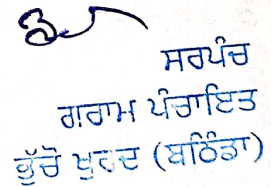 ਸਰਪੰਚ
ਗਰਾਮ ਪੰਚਾਇਤ
ਭੁੱਚੋ ਖੁਰਦ (ਬਠਿੰਡਾ)